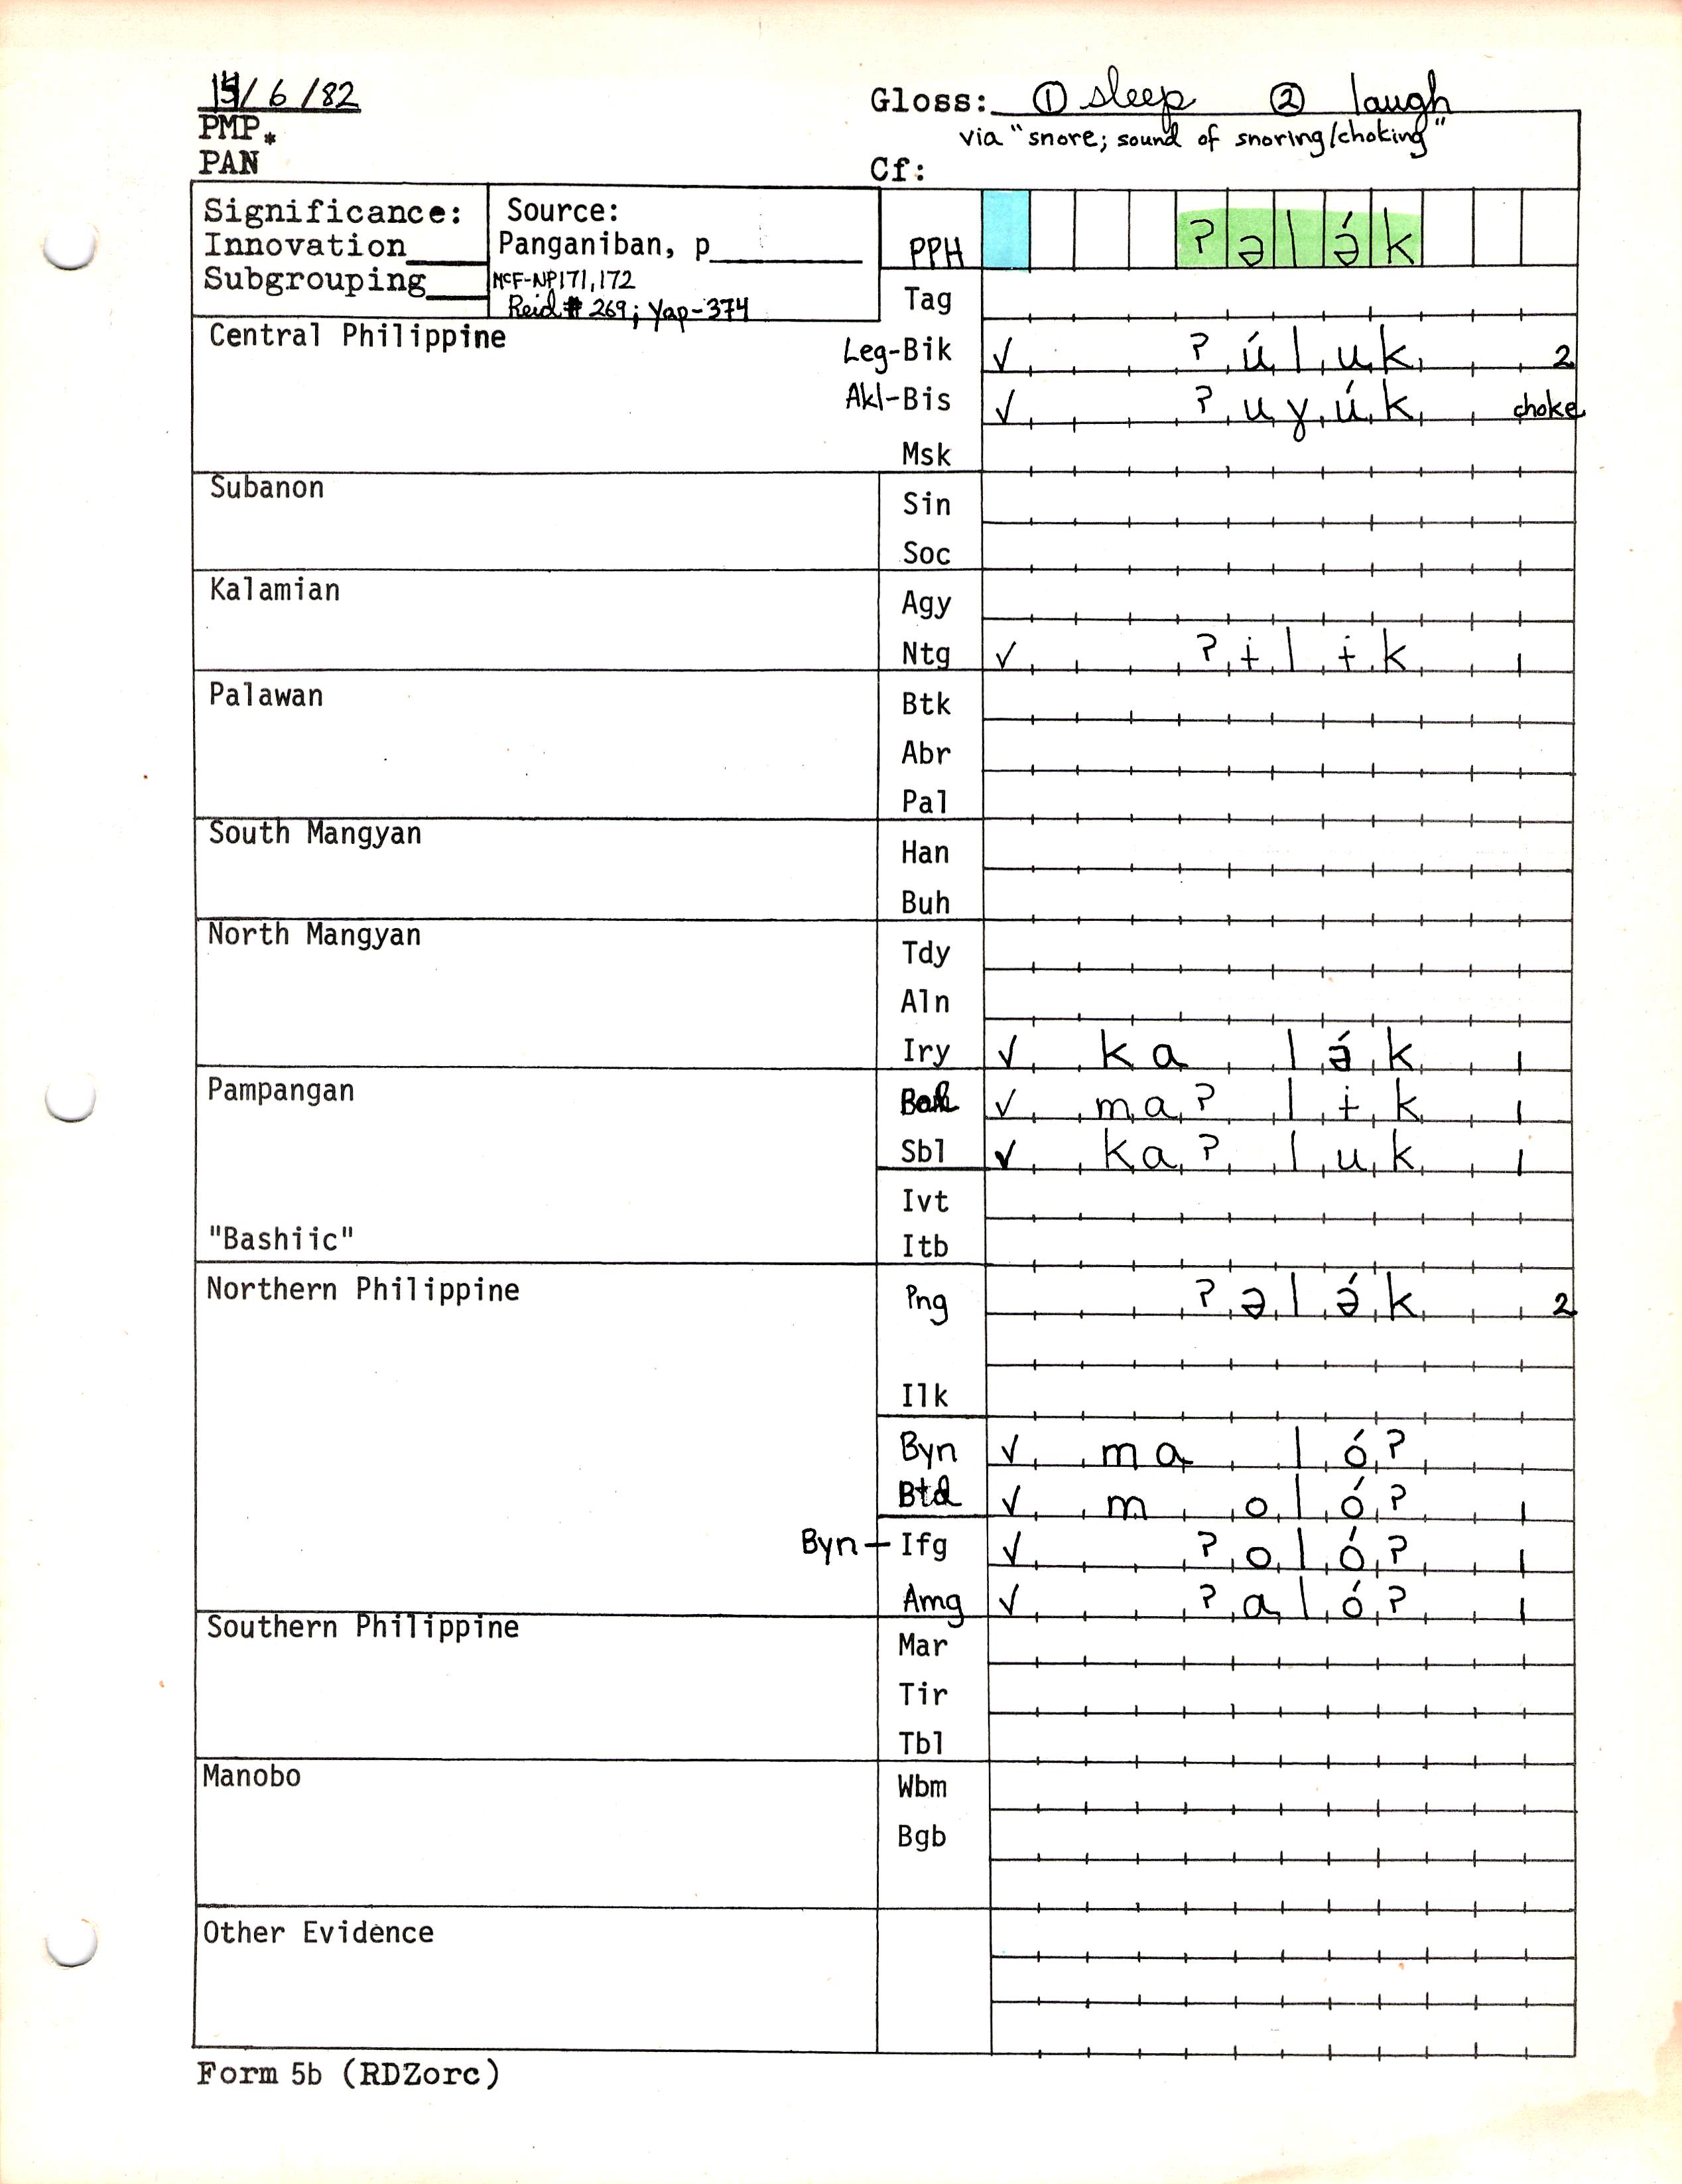 15/6/82
Gloss: ① sleep ② laugh
PMP*
via "snore; sound of snoring/choking"
PAN
Cf:
Significance:
Innovation____
Subgrouping____
Source:
Panganiban, p________
McF-NP171,172
Reid # 269; Yap-374
PPH ʔələ́k
Tag
Central Philippine
Leg-Bik ✓ ʔúluk 2
Akl-Bis ✓ ʔuyúk choke
Msk
Subanon
Sin
Soc
Kalamian
Agy
Ntg ✓ ʔɨlɨk 1
Palawan
Btk
Abr
Pal
South Mangyan
Han
Buh
North Mangyan
Tdy
Aln
Iry ✓ ka lə́k 1
Pampangan
✓ maʔ lɨk 1
Sbl ✓ kaʔ luk 1
Ivt
"Bashiic"
Itb
Northern Philippine
Png ʔələ́k 2
Ilk
Byn ✓ ma lóʔ
Btd ✓ m olóʔ 1
Byn-Ifg ✓ ʔolóʔ 1
Amg ✓ ʔalóʔ 1
Southern Philippine
Mar
Tir
Tbl
Manobo
Wbm
Bgb
Other Evidence
Form 5b (RDZorc)